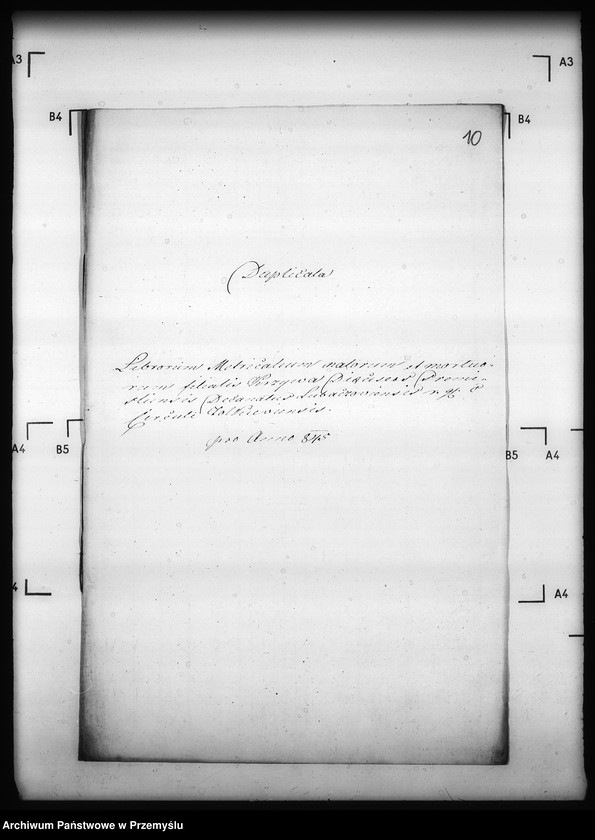 A3
A3
B4
B4
10
Duplicata
Librorum Metricalium natorum et mortuo-
rum filialis Krzywa Diæcesis Premi-
sliensis Decanatus Lubaczoviensis r. g. C
Circuli Zolkieviensis.
pro Anno 845
A4
B5
B5
A4
4
A4
Archiwum Państwowe w Przemyślu